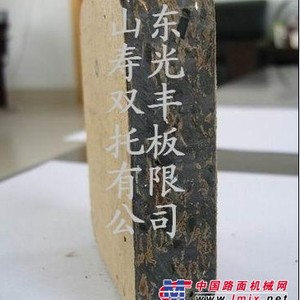 山东
寿光
双丰
托板
有限
公司
中国路面机械网
www.lmjx.net